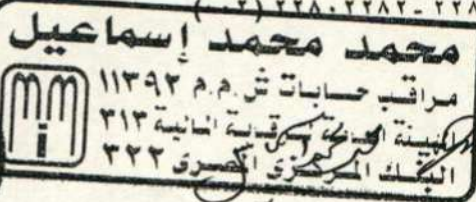 ٢٢٨٠٢٢٨٢ - ٢٢٨ (٠٢)
محمد محمد إسماعيل
مراقب حسابات ش.م.م ١١٣٩٣
الهيئة العامة للرقابة المالية ٣١٣
البنك المركزى المصرى ٣٢٢
mm